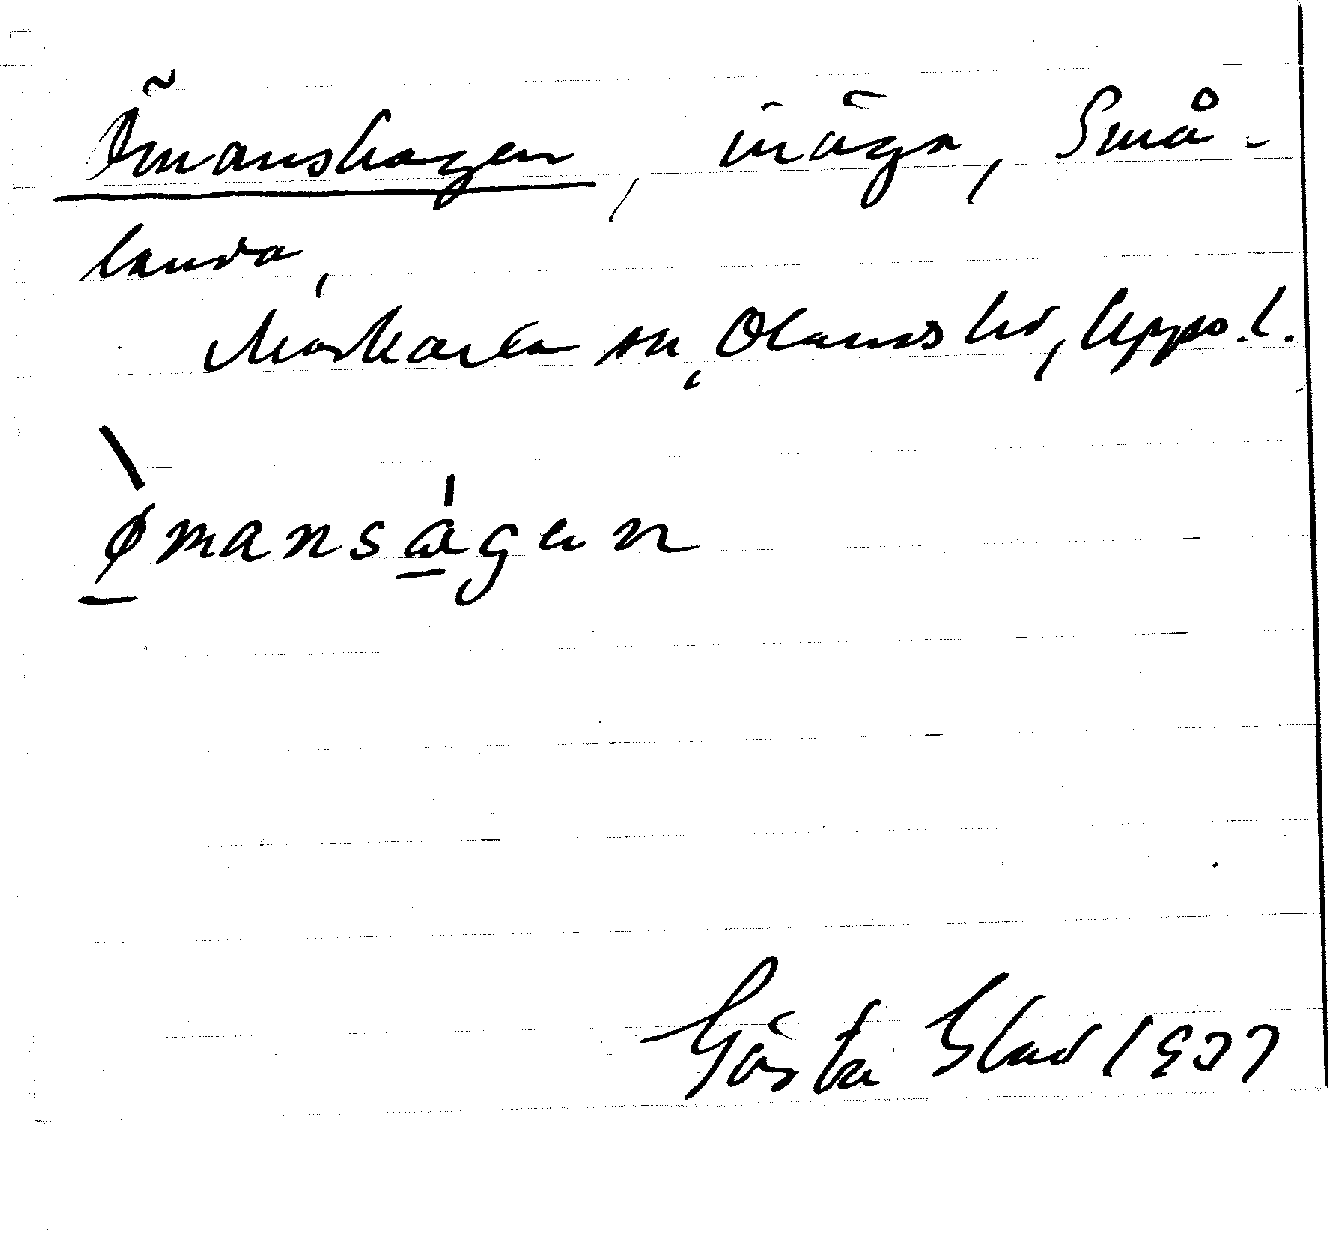 Ömanshagen, inäga, Små-
landa,
Morkarla sn, Olands hd, Upps. l.
ømansagen
Gösta Blad 1937